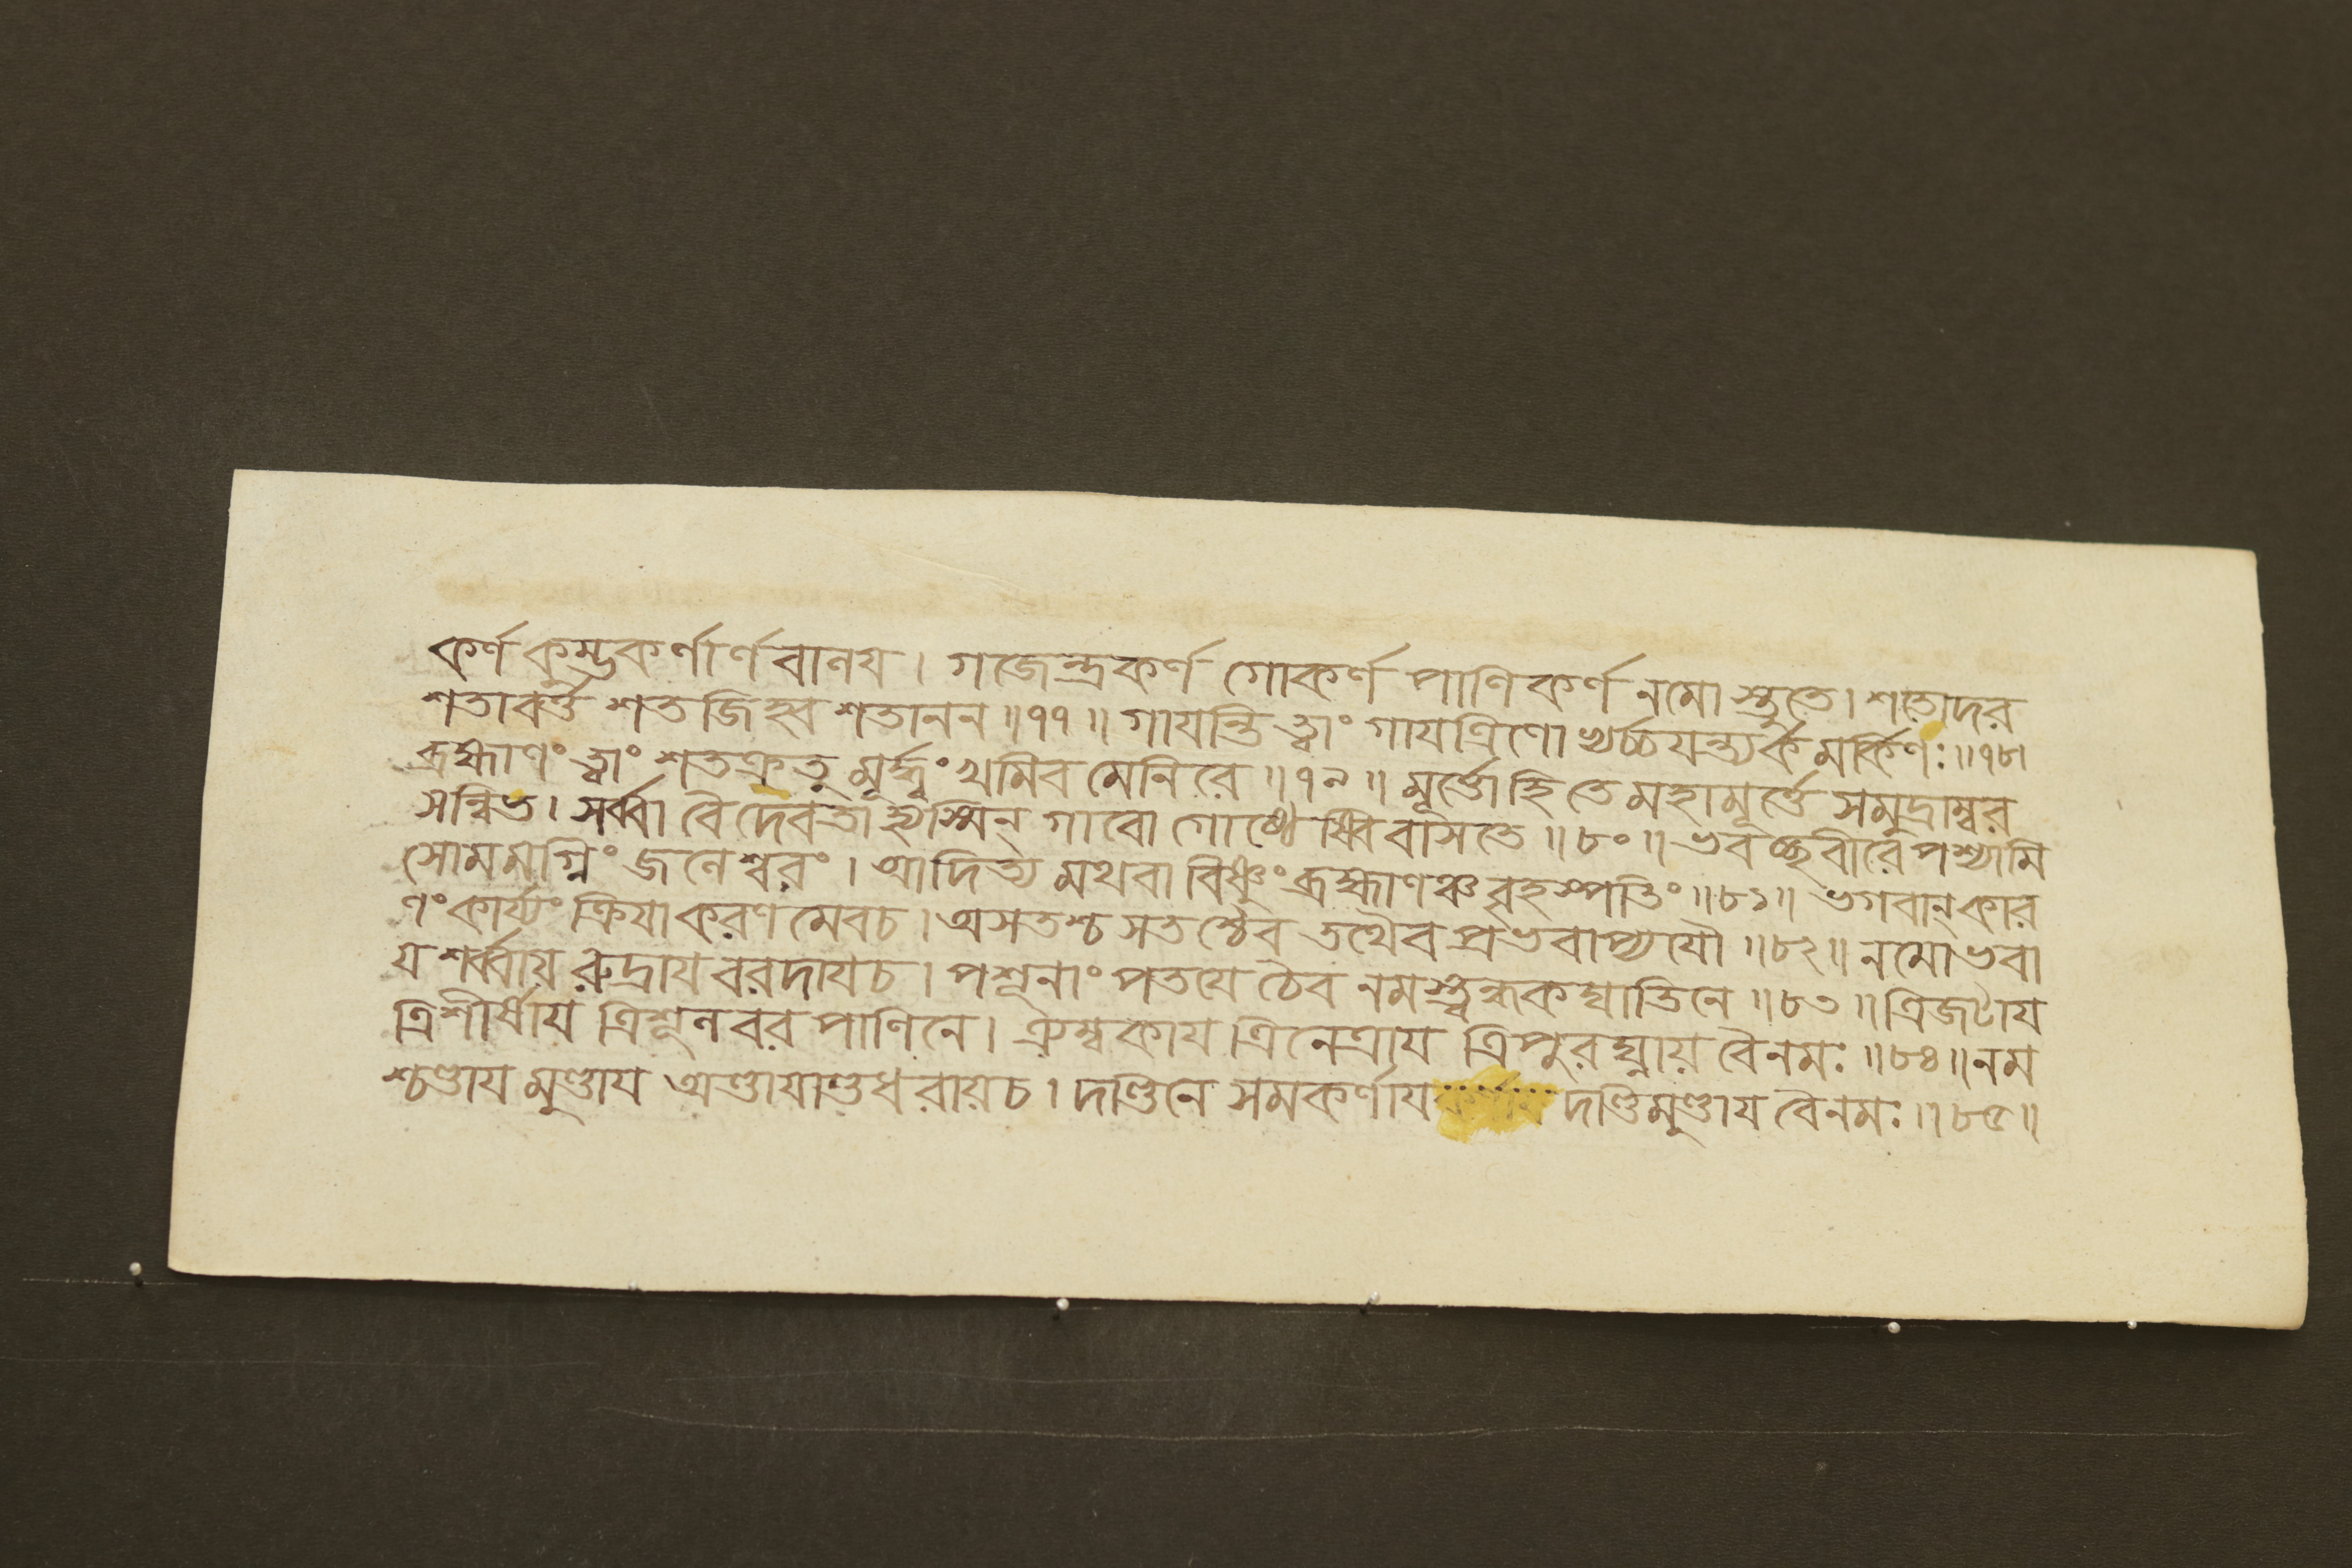 কর্ণ কুম্ভকর্ণার্ণবালয। গজেন্দ্রকর্ণ গোকর্ণ পাণিকর্ণ নমোস্তুতে। শতোদর
শতাবর্ত্ত শতজিহ্ব শতানন॥৭৭॥ গাযন্তি ত্বাং গাযত্রিণো খর্চ্চযন্ত্যর্কমর্কিণঃ॥৭৮।
ব্রহ্মাণং ত্বাং শতক্রতু মূর্দ্ধ্বং খমিব মেনিরে॥৭৯॥ মূর্ত্তৌ হি তে মহামূর্ত্তে সমুদ্রাম্বর
সন্নিভ। সর্ব্বা বৈ দেবতা হ্যস্মিন্ গাবো গোষ্ঠ ইবাসতে॥৮০॥ ভবচ্ছরীরে পশ্যামি
সোমমগ্নিং জলেশ্বরং। আদিত্য মথবা বিষ্ণুং ব্রহ্মাণঞ্চ বৃহস্পতিং॥৮১॥ ভগবান্ কার
ণং কার্য্যং ক্রিযাকরণ মেবচ। অসতশ্চ সতশ্চৈব তথৈব প্রভবাপ্যযৌ॥৮২॥ নমো ভবা
য শর্ব্বায় রুদ্রায বরদাযচ। পশূনাং পতযে চৈব নমস্ত্বন্ধকঘাতিনে॥৮৩॥ ত্রিজটায
ত্রিশীর্ষায ত্রিশূলবর পাণিনে। ত্র্যম্বকায ত্রিনেত্রায ত্রিপুরঘ্নায় বৈনমঃ॥৮৪॥ নম
শ্চণ্ডায মুণ্ডায অণ্ডাযাণ্ডধরায়চ। দণ্ডিনে সমকর্ণায দণ্ডিমুণ্ডায বৈনমঃ॥৮৫॥